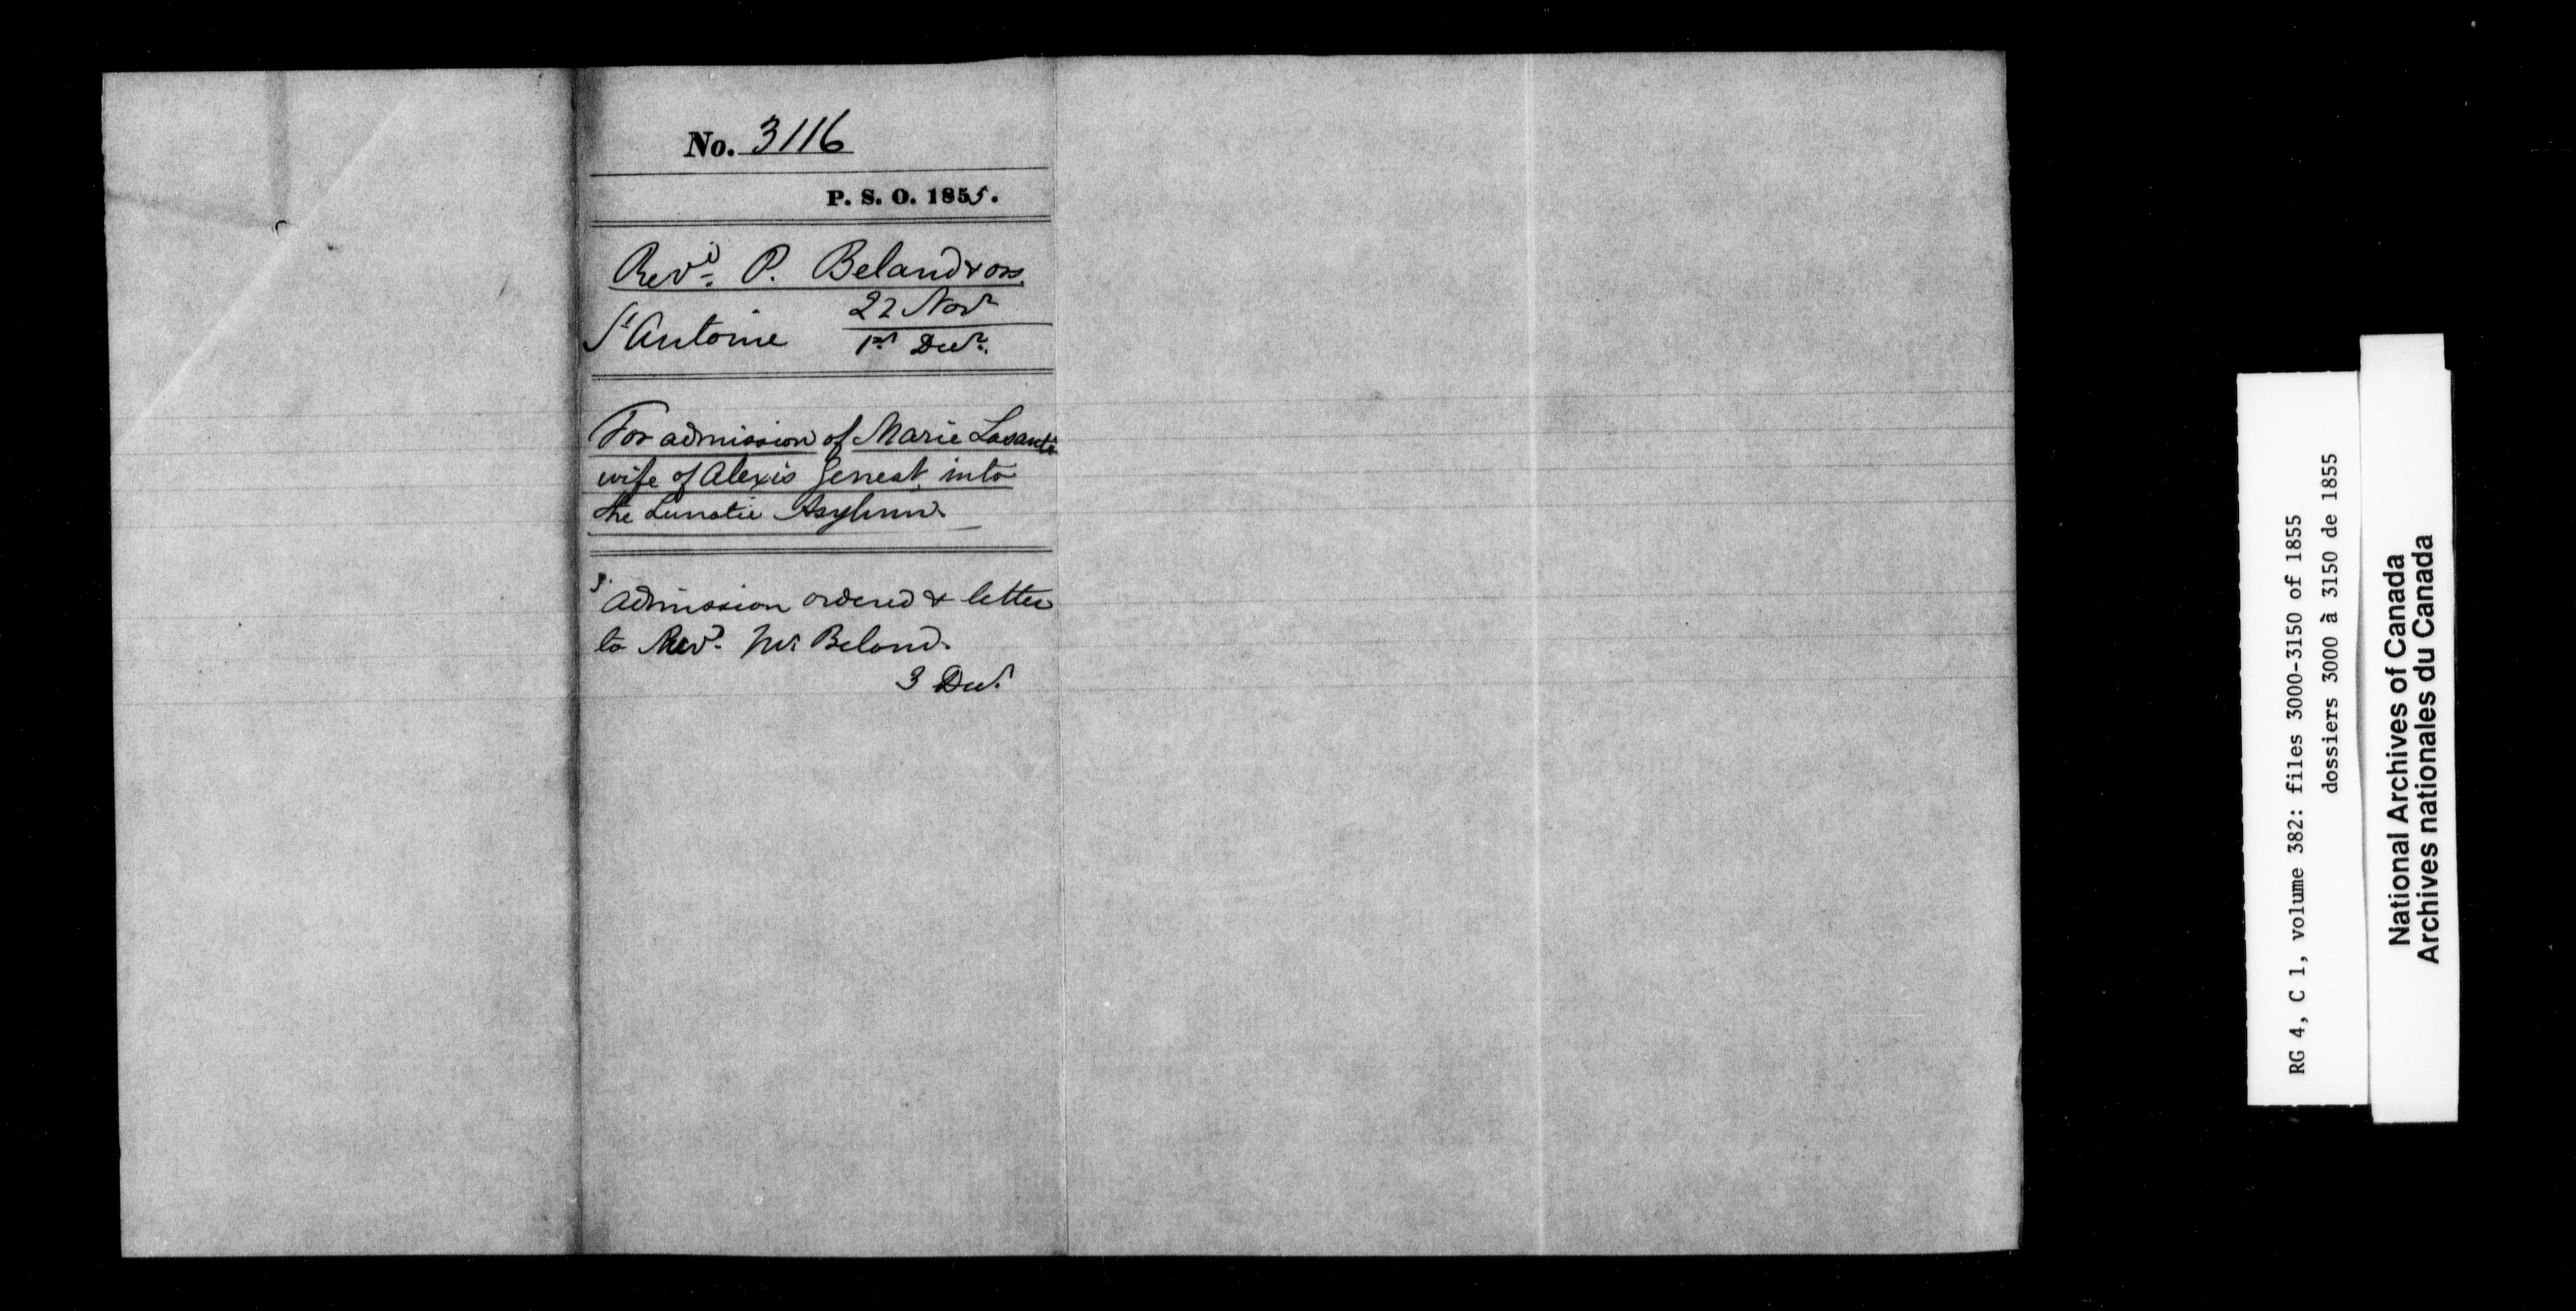 No. 3116
P. S. O. 1855.
Revd. P. Beland & ors.
St Antoine
22 Novr
1st Decr.
For admission of Marie Lasanté
wife of Alexis Genest, into
the Lunatic Asylum
Admission ordered & letter
to Revd. Mr Beland.
3 Decr
RG 4, C 1, volume 382: files 3000-3150 of 1855
dossiers 3000 à 3150 de 1855
National Archives of Canada
Archives nationales du Canada